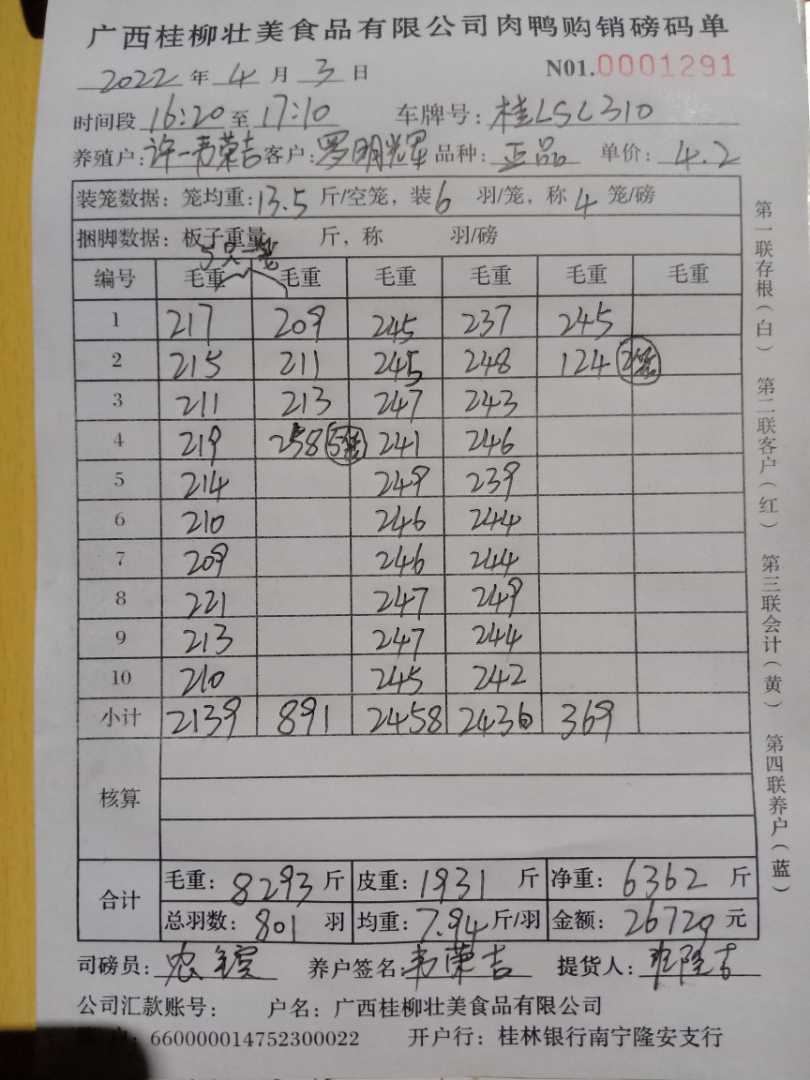 广西桂柳壮美食品有限公司肉鸭购销磅码单
2022 年 4 月 3 日 N01.0001291
时间段 16:20 至 17:10 车牌号: 桂LSL310
养殖户: 许一韦荣吉 客户: 罗明辉 品种: 正品 单价: 4.2
装笼数据: 笼均重: 13.5 斤/空笼, 装 6 羽/笼, 称 4 笼/磅
捆脚数据: 板子重量 斤, 称 羽/磅
5只一笼
编号 毛重 毛重 毛重 毛重 毛重 毛重
1 217 209 245 237 245
2 215 211 245 248 124 2笼
3 211 213 247 243
4 219 258 5笼 241 246
5 214 249 239
6 210 246 244
7 209 246 244
8 221 247 249
9 213 247 244
10 210 245 242
小计 2139 891 2458 2436 369
核算
合计 毛重: 8293 斤 皮重: 1931 斤 净重: 6362 斤
总羽数: 801 羽 均重: 7.94 斤/羽 金额: 26720 元
司磅员: 养户签名: 韦荣吉 提货人:
公司汇款账号: 户名: 广西桂柳壮美食品有限公司
660000014752300022 开户行: 桂林银行南宁隆安支行
第一联存根(白) 第二联客户(红) 第三联会计(黄) 第四联养户(蓝)